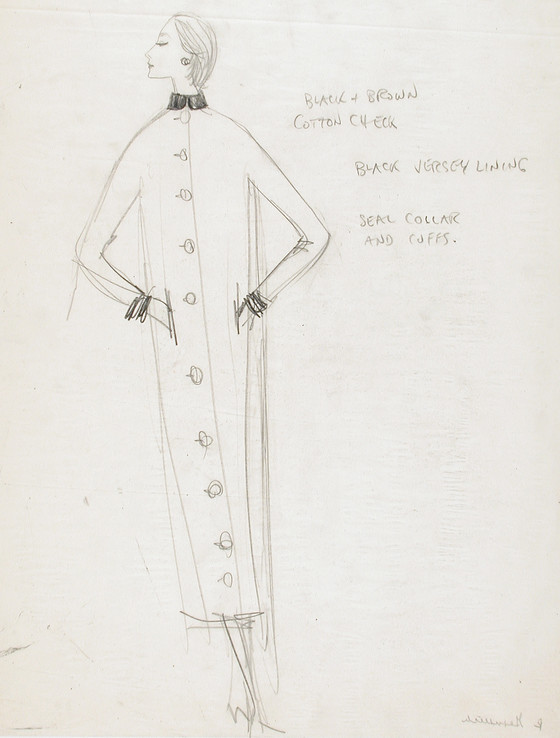 BLACK + BROWN
COTTON CHECK
BLACK JERSEY LINING
SEAL COLLAR
AND CUFFS.